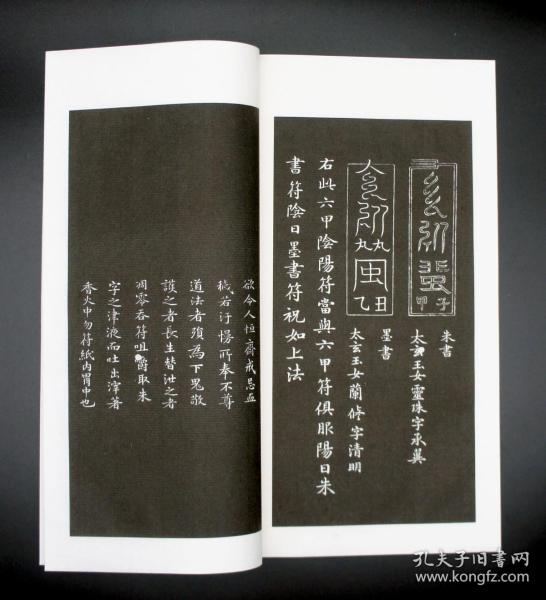 甲子
朱書
太玄玉女靈珠字承翼
乙丑
墨書
太玄玉女蘭脩字清明
右此六甲陰陽符當與六甲符俱服陽日朱
書符陰日墨書符祝如上法
欲令人恒齋戒忌血
穢若汙慢所奉不尊
道法者須為下鬼敬
護之者長生替泄之者
凋零吞符咀嚼取朱
字之津液而吐出滓著
香火中勿符紙內胃中也
孔夫子旧书网
www.kongfz.com